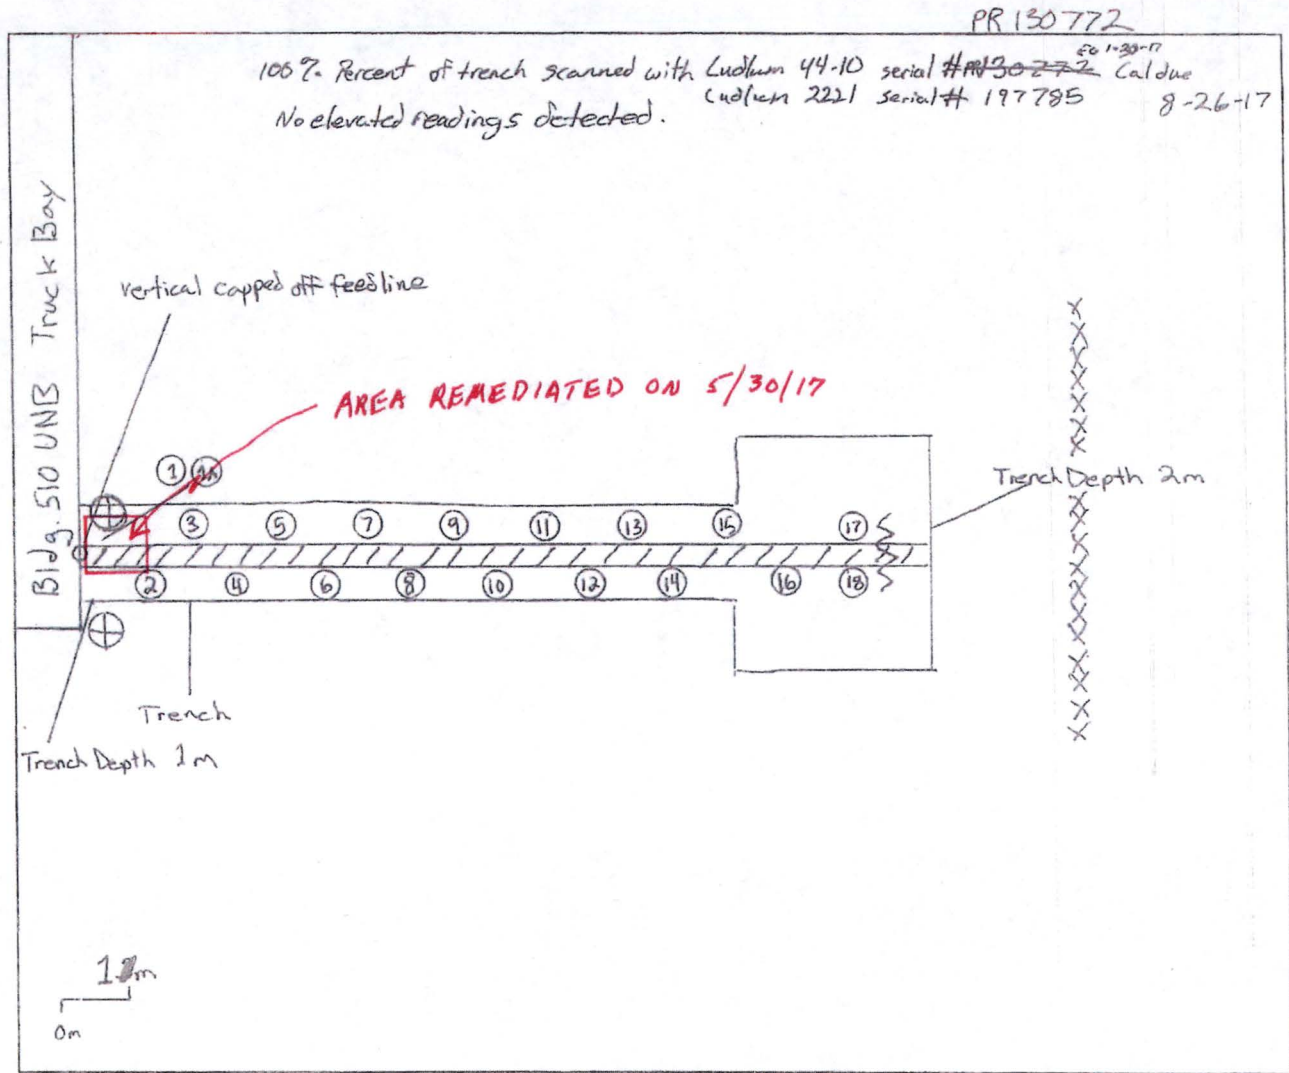 PR 130772
EG 1-30-17
100% Percent of trench scanned with Ludlum 44-10 serial # Cal due
Ludlum 2221 serial# 197785 8-26-17
No elevated readings detected.
Bldg. 510 UNB Truck Bay
vertical capped off feedline
AREA REMEDIATED ON 5/30/17
1 1A
Trench Depth 2m
3 5 7 9 11 13 15 17
2 4 6 8 10 12 14 16 18
Trench
Trench Depth 1m
1 m
0m